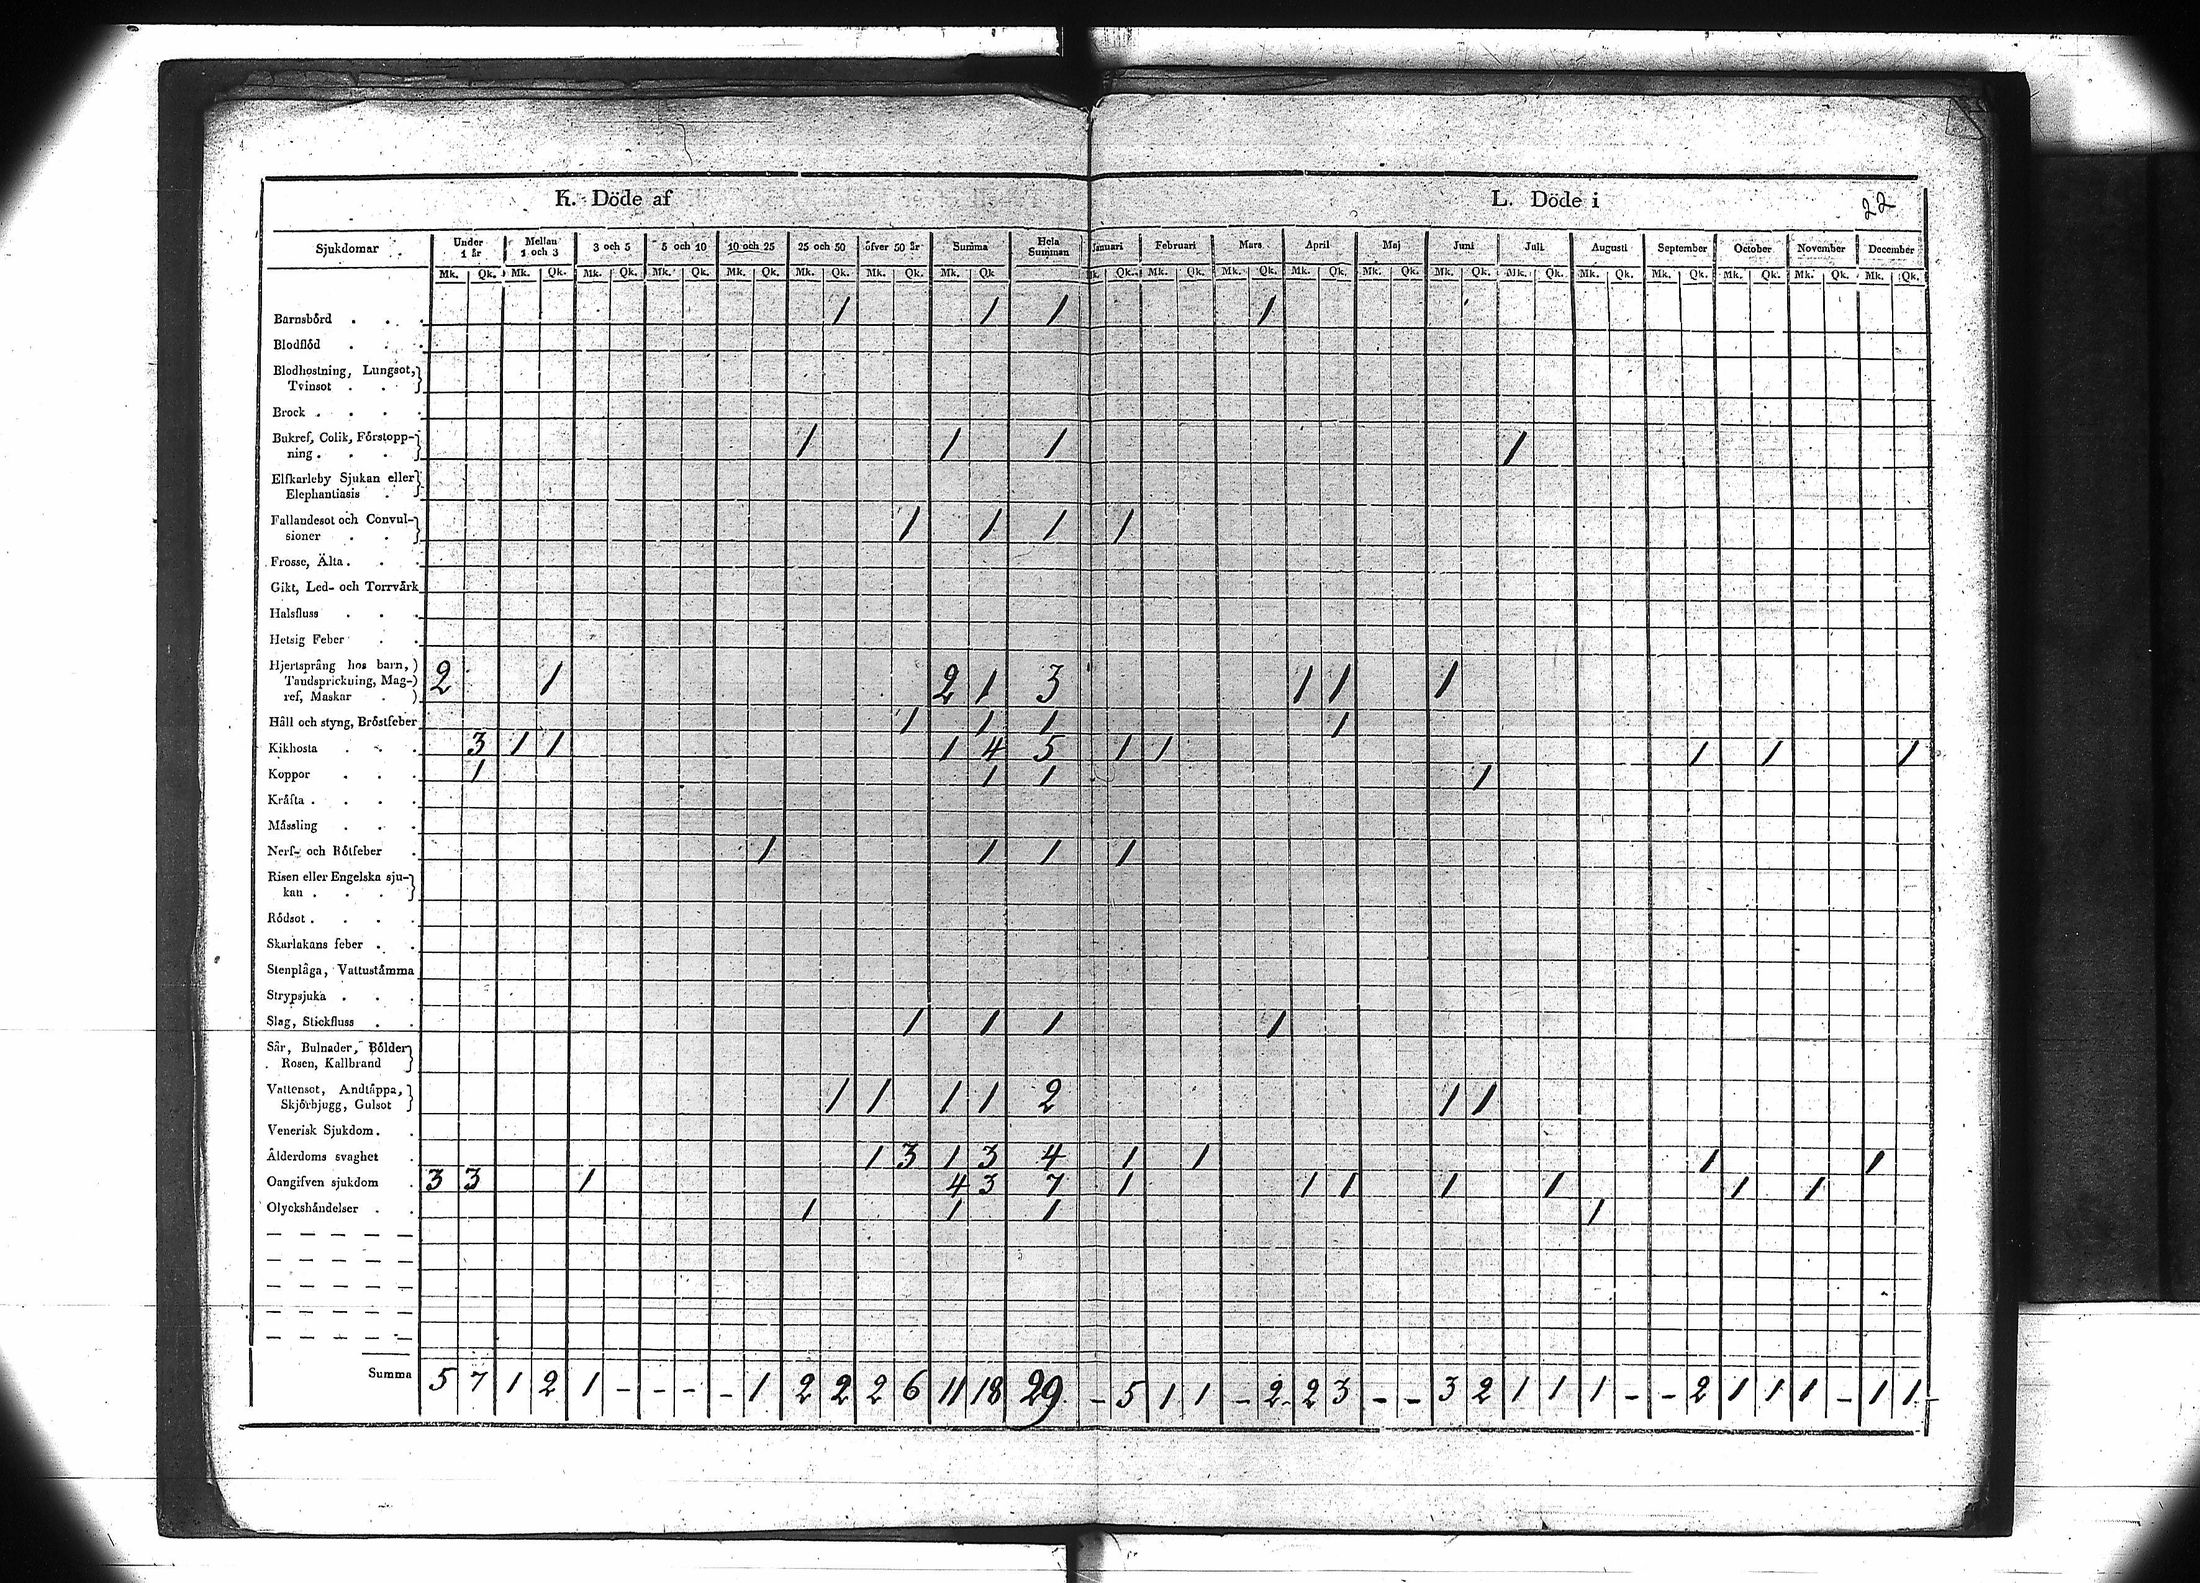 K. Döde af
L. Döde i
22
Sjukdomar Under 1 år Mellan 1 och 3 3 och 5 5 och 10 10 och 25 25 och 50 öfver 50 år Summa Hela Summan Januari Februari Mars April Maj Juni Juli Augusti September October November December
Mk. Qk. Mk. Qk. Mk. Qk. Mk. Qk. Mk. Qk. Mk. Qk. Mk. Qk. Mk. Qk. Mk. Qk. Mk. Qk. Mk. Qk. Mk. Qk. Mk. Qk. Mk. Qk. Mk. Qk. Mk. Qk. Mk. Qk. Mk. Qk. Mk. Qk. Mk. Qk.
Barnsbörd . . . 1 1 1 1
Blodflöd . . .
Blodhostning, Lungsot,
Tvinsot . .
Brock . . . .
Bukref, Colik, Förstopp-
ning . . . 1 1 1 1
Elfkarleby Sjukan eller
Elephantiasis .
Fallandesot och Convul-
sioner . . 1 1 1 1
Frosse, Älta . . .
Gikt, Led- och Torrvärk
Halsfluss . . .
Hetsig Feber . .
Hjertsprång hos barn,
Tandsprickning, Mag-
ref, Maskar . 2 1 2 1 3 1 1 1
Håll och styng, Bröstfeber 1 1 1 1
Kikhosta . . . 3 1 1 1 4 5 1 1 1 1 1
Koppor . . . 1 1 1 1
Kräfta . . . .
Mässling . . .
Nerf- och Rötfeber . 1 1 1 1
Risen eller Engelska sju-
kan . . .
Rödsot . . . .
Skarlakans feber . .
Stenplåga, Vattustämma
Strypsjuka . . .
Slag, Stickfluss . . 1 1 1 1
Sår, Bulnader, Bölder
Rosen, Kallbrand
Vattensot, Andtäppa,
Skjörbjugg, Gulsot 1 1 1 1 2 1 1
Venerisk Sjukdom . .
Ålderdoms svaghet . 1 3 1 3 4 1 1 1 1
Oangifven sjukdom . 3 3 1 4 3 7 1 1 1 1 1 1 1
Olyckshändelser . . 1 1 1 1
Summa 5 7 1 2 1 - - - - 1 2 2 2 6 11 18 29 - 5 1 1 - 2 2 3 - - 3 2 1 1 1 - - 2 1 1 1 - 1 1